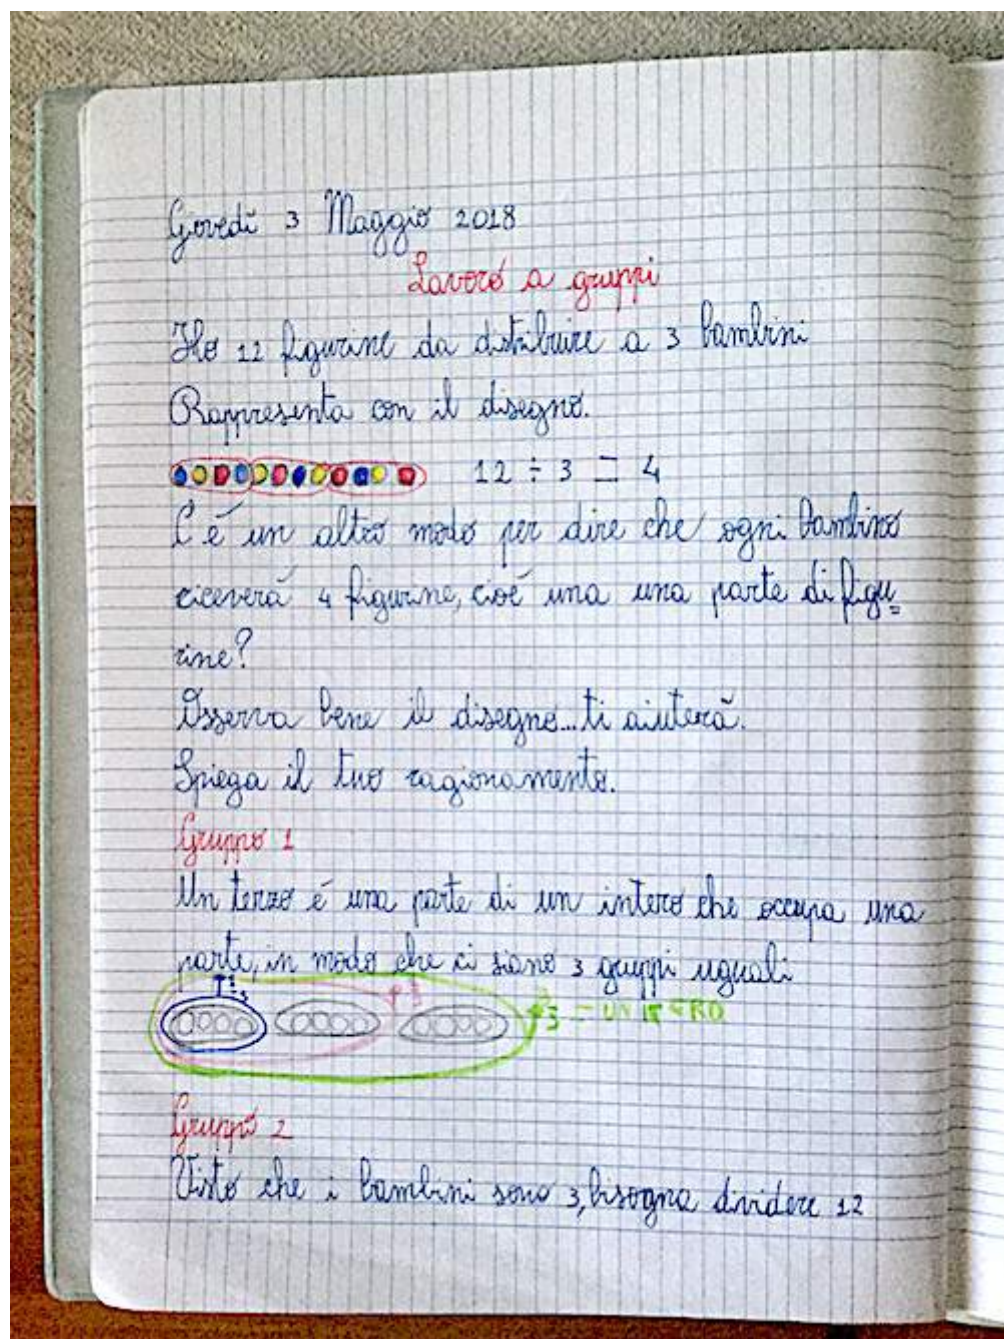 Giovedì 3 Maggio 2018
Lavoro a gruppi
Ho 12 figurine da distribuire a 3 bambini
Rappresenta con il disegno.
12 ÷ 3 = 4
C'é un altro modo per dire che ogni bambino
riceverá 4 figurine, cioé una una parte di figu=
rine?
Osserva bene il disegno...ti aiuterá.
Spiega il tuo ragionamento.
Gruppo 1
Un terzo é una parte di un intero che occupa una
parte, in modo che ci siano 3 gruppi uguali
3 = UN INTERO
Gruppo 2
Visto che i bambini sono 3, bisogna dividere 12